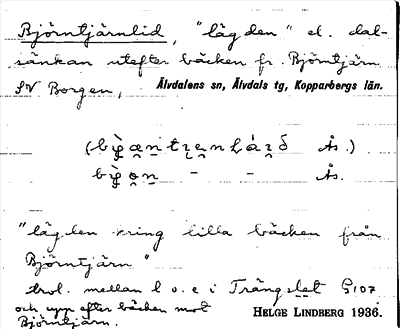 Björntjärnlid, "lägden" el. dal-
sänkan utefter bäcken fr. Björntjärn
SV Borgen, Älvdalens sn, Älvdals tg, Kopparbergs län.
Ås.)
– – Ås.
"lägden kring lilla bäcken från
Björntjärn"
trol. mellan l o. e i Trängslet G107
och upp efter bäcken mot
Björntjärn. HELGE LINDBERG 1936.